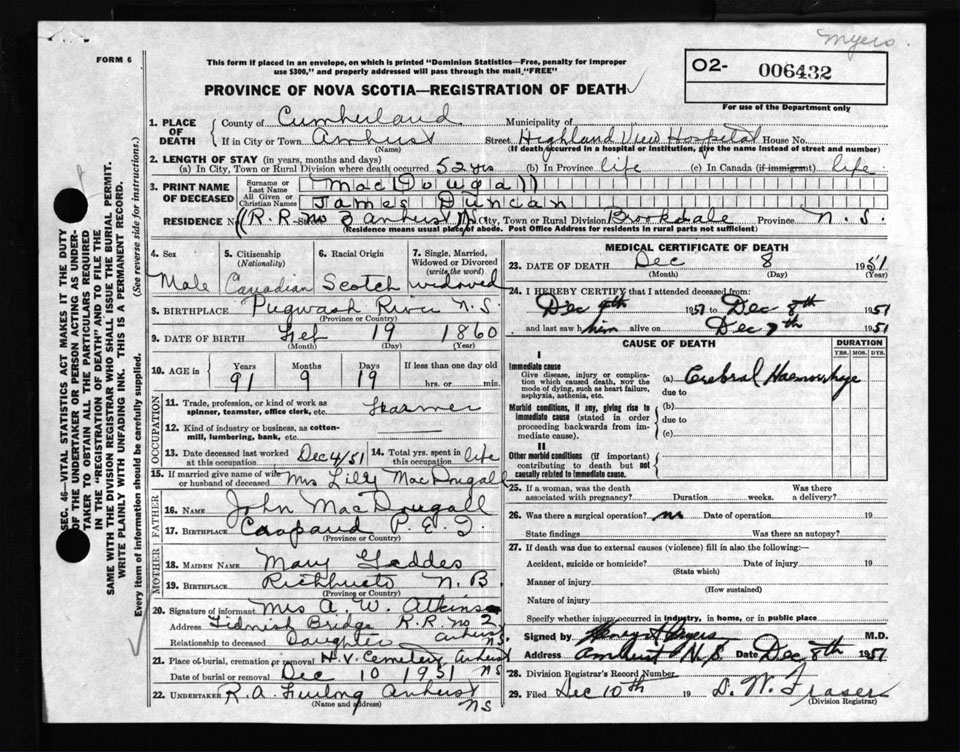 Myers
FORM 6
This form if placed in an envelope, on which is printed "Dominion Statistics—Free, penalty for improper
use $300," and properly addressed will pass through the mail "FREE"
PROVINCE OF NOVA SCOTIA—REGISTRATION OF DEATH
O2- 006432
For use of the Department only
SEC. 46—VITAL STATISTICS ACT MAKES IT THE DUTY
OF THE UNDERTAKER OR PERSON ACTING AS UNDER-
TAKER TO OBTAIN ALL THE PARTICULARS REQUIRED
IN THE "REGISTRATION OF DEATH" AND TO FILE THE
SAME WITH THE DIVISION REGISTRAR WHO SHALL ISSUE THE BURIAL PERMIT.
WRITE PLAINLY WITH UNFADING INK. THIS IS A PERMANENT RECORD.
Every item of information should be carefully supplied. (See reverse side for instructions.)
1. PLACE OF DEATH County of Cumberland Municipality of
If in City or Town Amherst Street Highland View Hospital House No.
(Name) (If death occurred in a hospital or institution, give the name instead of street and number)
2. LENGTH OF STAY (in years, months and days)
(a) In City, Town or Rural Division where death occurred 52 yrs (b) In Province life (c) In Canada (if immigrant) life
3. PRINT NAME OF DECEASED Surname or Last Name MacDougall
All Given or Christian Names James Duncan
RESIDENCE No. R.R. no 3 Amherst NS City, Town or Rural Division Brookdale Province N.S.
(Residence means usual place of abode. Post Office Address for residents in rural parts not sufficient)
4. Sex 5. Citizenship (Nationality) 6. Racial Origin 7. Single, Married, Widowed or Divorced (write the word)
Male Canadian Scotch widowed
8. BIRTHPLACE Pugwash River N.S.
(Province or Country)
9. DATE OF BIRTH Feb 19 1860
(Month) (Day) (Year)
10. AGE in Years Months Days If less than one day old
91 9 19 hrs. or min.
OCCUPATION
11. Trade, profession, or kind of work as
spinner, teamster, office clerk, etc. Farmer
12. Kind of industry or business, as cotton-
mill, lumbering, bank, etc.
13. Date deceased last worked at this occupation Dec 4/51 14. Total yrs. spent in this occupation life
15. If married give name of wife
or husband of deceased Mrs Lilly MacDougall
FATHER
16. NAME John MacDougall
17. BIRTHPLACE Crapaud P.E.I.
(Province or Country)
MOTHER
18. MAIDEN NAME Mary Geddes
19. BIRTHPLACE Richibucto N.B.
(Province or Country)
20. Signature of informant Mrs A. W. Atkinson
Address Tidnish Bridge R.R. No 2 Amherst NS
Relationship to deceased Daughter
21. Place of burial, cremation or removal H.V. Cemetery Amherst NS
Date of burial or removal Dec 10 1951
22. UNDERTAKER R. A. Furlong Amherst NS
(Name and address)
MEDICAL CERTIFICATE OF DEATH
23. DATE OF DEATH Dec 8 1951
(Month) (Day)
24. I HEREBY CERTIFY that I attended deceased from:
Dec 4th 1951 to Dec 8th 1951
and last saw him alive on Dec 7th 1951
CAUSE OF DEATH DURATION
YRS. MOS. DYS.
I
Immediate cause
Give disease, injury or compli-
cation which caused death, NOT the
mode of dying, such as heart failure,
asphyxia, asthenia, etc.
(a) Cerebral Haemorrhage
due to
Morbid conditions, if any, giving rise to
immediate cause (stated in order
proceeding backwards from im-
mediate cause).
(b)
due to
(c)
II
Other morbid conditions (if important)
contributing to death but not
causally related to immediate cause.
25. If a woman, was the death Was there
associated with pregnancy? Duration weeks. a delivery?
26. Was there a surgical operation? no Date of operation 19
State findings Was there an autopsy?
27. If death was due to external causes (violence) fill in also the following:—
Accident, suicide or homicide? Date of injury 19
(State which)
Manner of injury
(How sustained)
Nature of injury
Specify whether injury occurred in industry, in home, or in public place
Signed by Henry A Myers M.D.
Address Amherst N.S. Date Dec 8th 1951
28. Division Registrar's Record Number
29. Filed Dec 10th 19 D. W. Fraser
(Division Registrar)